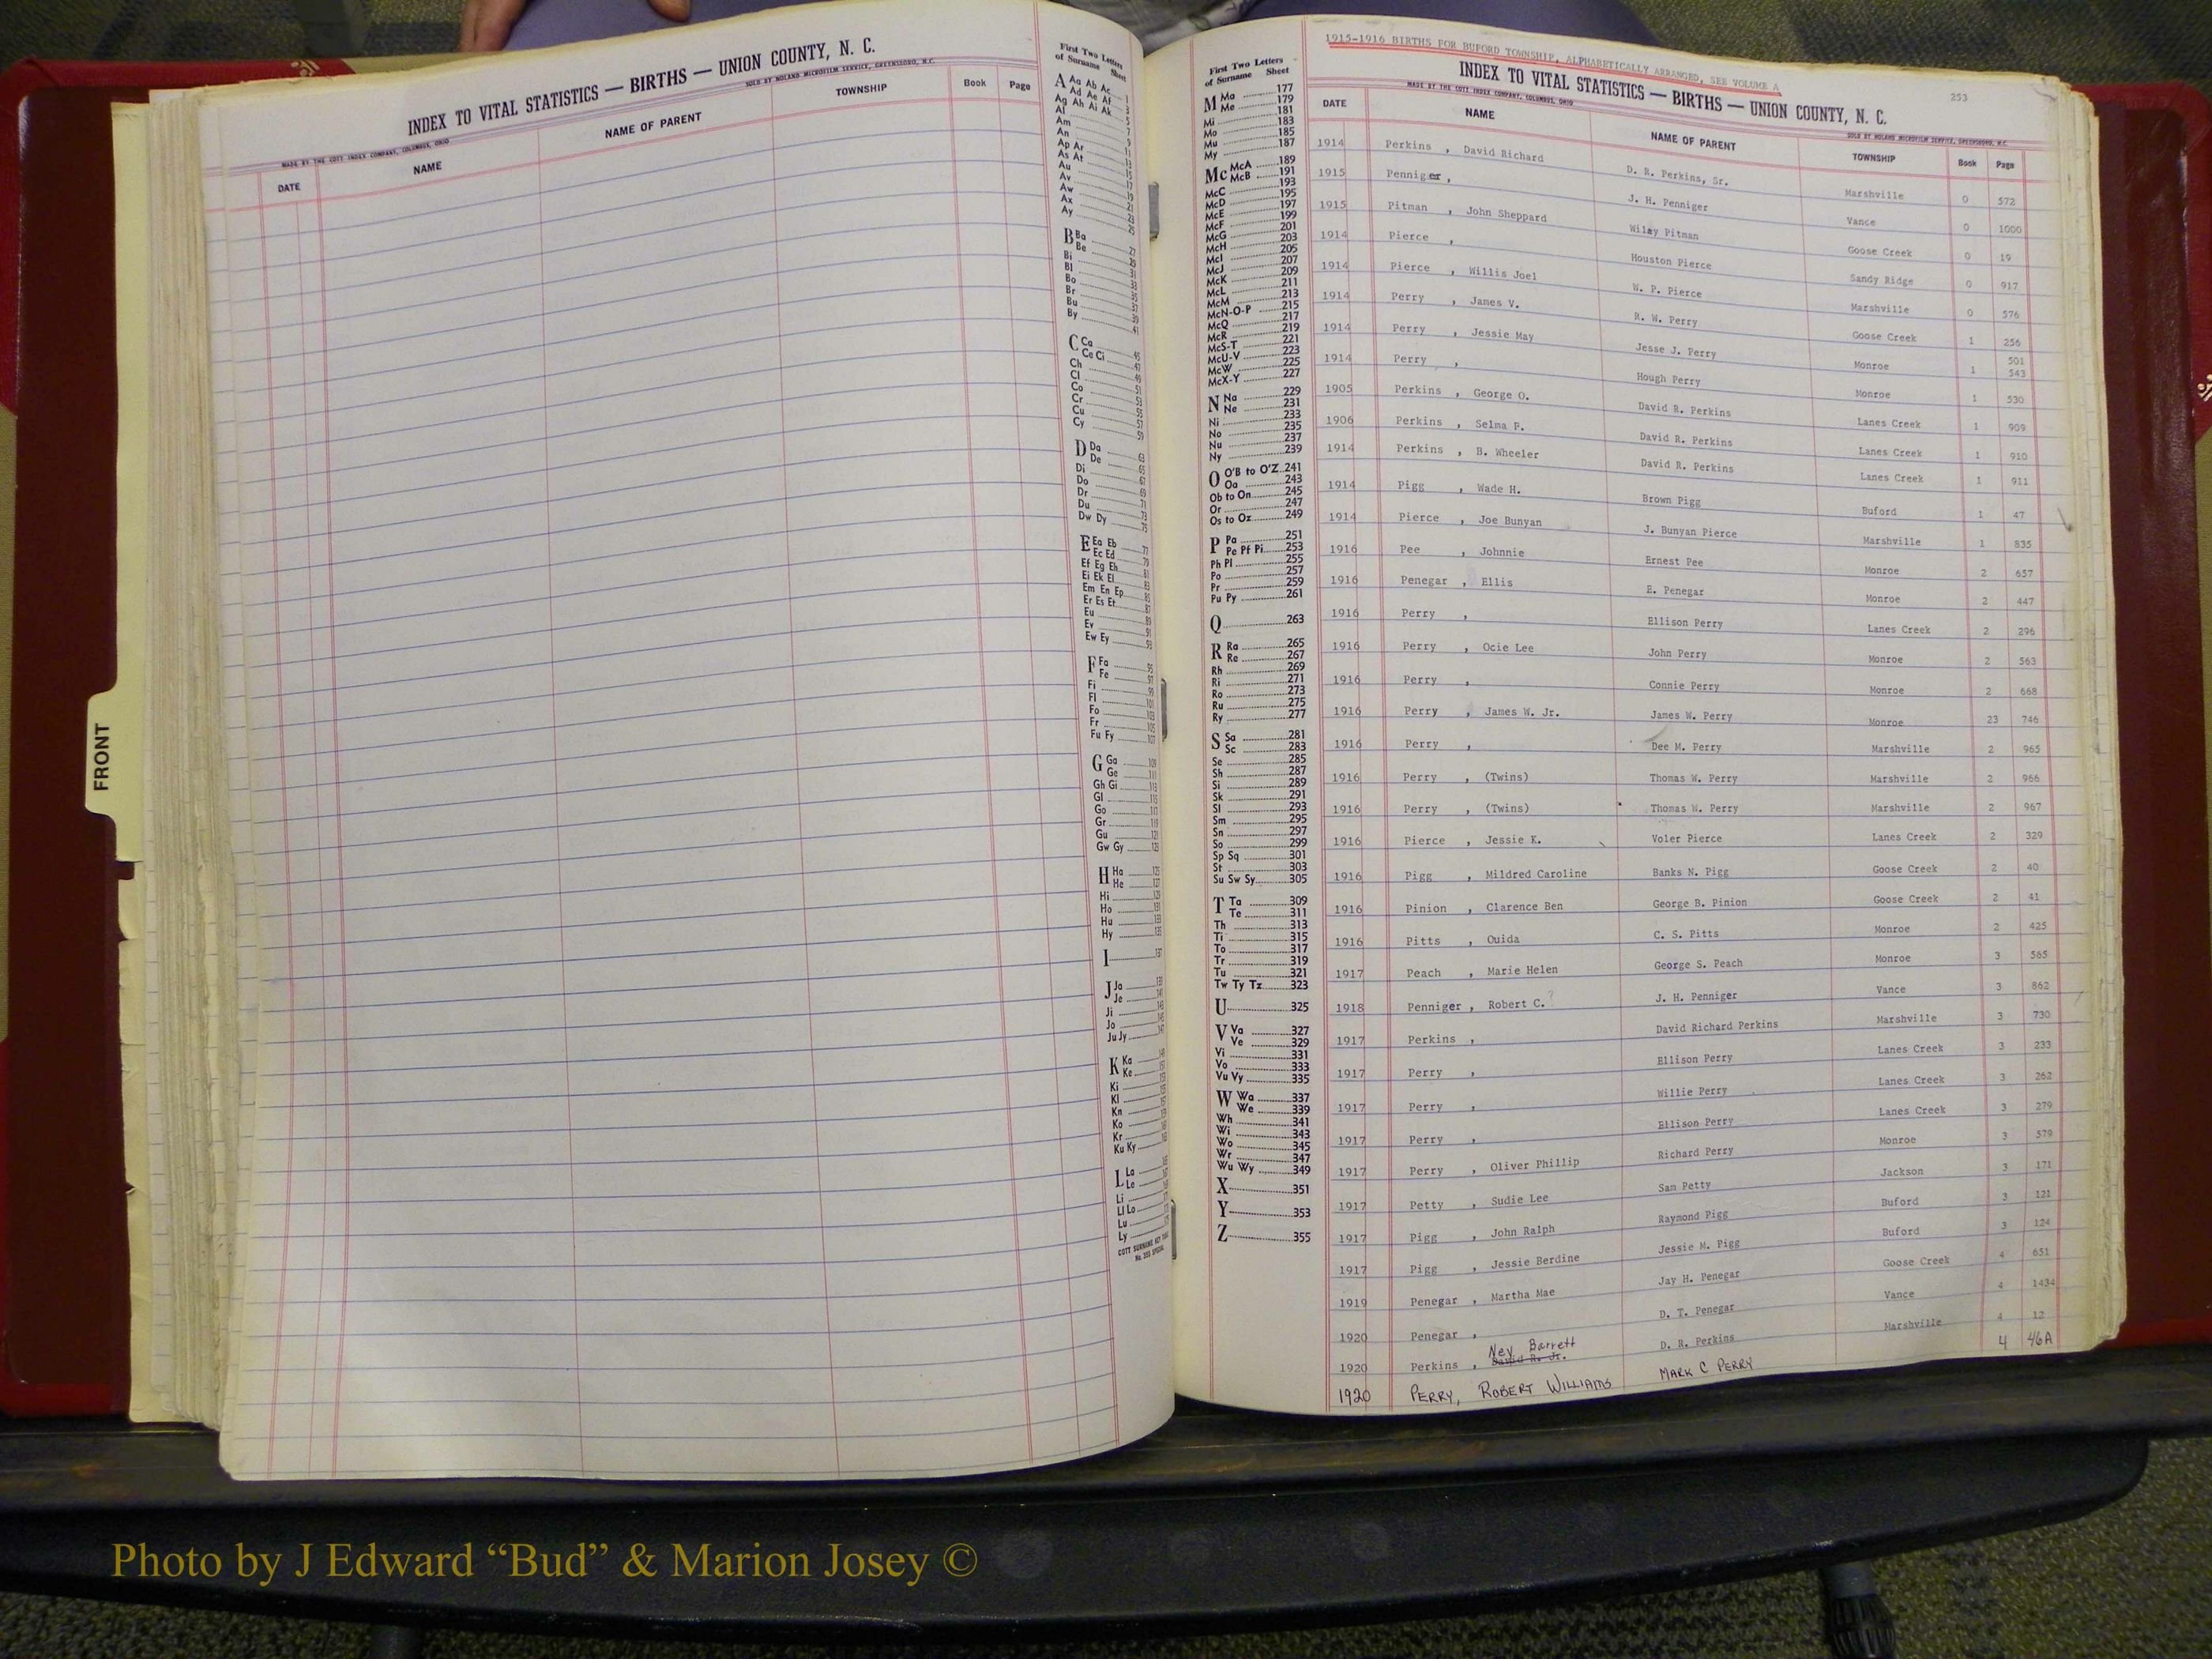 INDEX TO VITAL STATISTICS — BIRTHS — UNION COUNTY, N. C.
MADE BY THE COTT INDEX COMPANY, COLUMBUS, OHIO SOLD BY NOLAND MICROFILM SERVICE, GREENSBORO, N.C.
DATE NAME NAME OF PARENT TOWNSHIP Book Page
First Two Letters
of Surname Sheet
A Aa Ab Ac 1
Ad Ae Af 3
Ag Ah Ai Ak 5
Al 7
Am 9
An 11
Ap Ar 13
As At 15
Au 17
Av 19
Aw 21
Ax 23
Ay 25
B Ba 27
Be 29
Bi 31
Bl 33
Bo 35
Br 37
Bu 39
By 41
C Ca 45
Ce Ci 47
Ch 49
Cl 51
Co 53
Cr 55
Cu 57
Cy 59
D Da 63
De 65
Di 67
Do 69
Dr 71
Du 73
Dw Dy 75
E Ea Eb 77
Ec Ed 79
Ef Eg Eh 81
Ei Ek El 83
Em En Ep 85
Er Es Et 87
Eu 89
Ev 91
Ew Ey 93
F Fa 95
Fe 97
Fi 99
Fl 101
Fo 103
Fr 105
Fu Fy 107
G Ga 109
Ge 111
Gh Gi 113
Gl 115
Go 117
Gr 119
Gu 121
Gw Gy 123
H Ha 125
He 127
Hi 129
Ho 131
Hu 133
Hy 135
I 137
J Ja
Je
Ji
Jo
Ju Jy
K Ka
Ke
Ki
Kl
Kn
Ko
Kr
Ku Ky
L La
Le
Li
Ll Lo
Lu
Ly
COTT SURNAME KEY TABLE
FRONT
First Two Letters
of Surname Sheet
M Ma 177
Me 179
Mi 181
Mo 183
Mu 185
My 187
Mc McA 189
McB 191
McC 193
McD 195
McE 197
McF 199
McG 201
McH 203
McI 205
McJ 207
McK 209
McL 211
McM 213
McN-O-P 215
McQ 217
McR 219
McS-T 221
McU-V 223
McW 225
McX-Y 227
N Na 229
Ne 231
Ni 233
No 235
Nu 237
Ny 239
O O'B to O'Z 241
Oa 243
Ob to On 245
Or 247
Os to Oz 249
P Pa 251
Pe Pf Pi 253
Ph Pl 255
Po 257
Pr 259
Pu Py 261
Q 263
R Ra 265
Re 267
Rh 269
Ri 271
Ro 273
Ru 275
Ry 277
S Sa 281
Sc 283
Se 285
Sh 287
Si 289
Sk 291
Sl 293
Sm 295
Sn 297
So 299
Sp Sq 301
St 303
Su Sw Sy 305
T Ta 309
Te 311
Th 313
Ti 315
To 317
Tr 319
Tu 321
Tw Ty Tz 323
U 325
V Va 327
Ve 329
Vi 331
Vo 333
Vu Vy 335
W Wa 337
We 339
Wh 341
Wi 343
Wo 345
Wr 347
Wu Wy 349
X 351
Y 353
Z 355
1915-1916 BIRTHS FOR BUFORD TOWNSHIP, ALPHABETICALLY ARRANGED, SEE VOLUME A
253
INDEX TO VITAL STATISTICS — BIRTHS — UNION COUNTY, N. C.
MADE BY THE COTT INDEX COMPANY, COLUMBUS, OHIO SOLD BY NOLAND MICROFILM SERVICE, GREENSBORO, N.C.
DATE NAME NAME OF PARENT TOWNSHIP Book Page
1914 Perkins , David Richard D. R. Perkins, Sr. Marshville 0 572
1915 Penniger , J. H. Penniger Vance 0 1000
1915 Pitman , John Sheppard Wiley Pitman Goose Creek 0 19
1914 Pierce , Houston Pierce Sandy Ridge 0 917
1914 Pierce , Willis Joel W. P. Pierce Marshville 0 576
1914 Perry , James V. R. W. Perry Goose Creek 1 256
1914 Perry , Jessie May Jesse J. Perry Monroe 1 501 543
1914 Perry , Hough Perry Monroe 1 530
1905 Perkins , George O. David R. Perkins Lanes Creek 1 909
1906 Perkins , Selma F. David R. Perkins Lanes Creek 1 910
1914 Perkins , B. Wheeler David R. Perkins Lanes Creek 1 911
1914 Pigg , Wade H. Brown Pigg Buford 1 47
1914 Pierce , Joe Bunyan J. Bunyan Pierce Marshville 1 835
1916 Pee , Johnnie Ernest Pee Monroe 2 657
1916 Penegar , Ellis E. Penegar Monroe 2 447
1916 Perry , Ellison Perry Lanes Creek 2 296
1916 Perry , Ocie Lee John Perry Monroe 2 563
1916 Perry , Connie Perry Monroe 2 668
1916 Perry , James W. Jr. James W. Perry Monroe 23 746
1916 Perry , Dee M. Perry Marshville 2 965
1916 Perry , (Twins) Thomas W. Perry Marshville 2 966
1916 Perry , (Twins) Thomas W. Perry Marshville 2 967
1916 Pierce , Jessie K. Voler Pierce Lanes Creek 2 329
1916 Pigg , Mildred Caroline Banks N. Pigg Goose Creek 2 40
1916 Pinion , Clarence Ben George B. Pinion Goose Creek 2 41
1916 Pitts , Ouida C. S. Pitts Monroe 2 425
1917 Peach , Marie Helen George S. Peach Monroe 3 565
1918 Penniger , Robert C. ? J. H. Penniger Vance 3 862
1917 Perkins , David Richard Perkins Marshville 3 730
1917 Perry , Ellison Perry Lanes Creek 3 233
1917 Perry , Willie Perry Lanes Creek 3 262
1917 Perry , Ellison Perry Lanes Creek 3 279
1917 Perry , Oliver Phillip Richard Perry Monroe 3 579
1917 Petty , Sudie Lee Sam Petty Jackson 3 171
1917 Pigg , John Ralph Raymond Pigg Buford 3 121
1917 Pigg , Jessie Berdine Jessie M. Pigg Buford 3 124
1919 Penegar , Martha Mae Jay H. Penegar Goose Creek 4 651
1920 Penegar , D. T. Penegar Vance 4 1434
Ney Barrett
1920 Perkins , David R. Jr. D. R. Perkins Marshville 4 12
1920 PERRY, ROBERT WILLIAMS MARK C PERRY 4 46A
Photo by J Edward “Bud” & Marion Josey ©